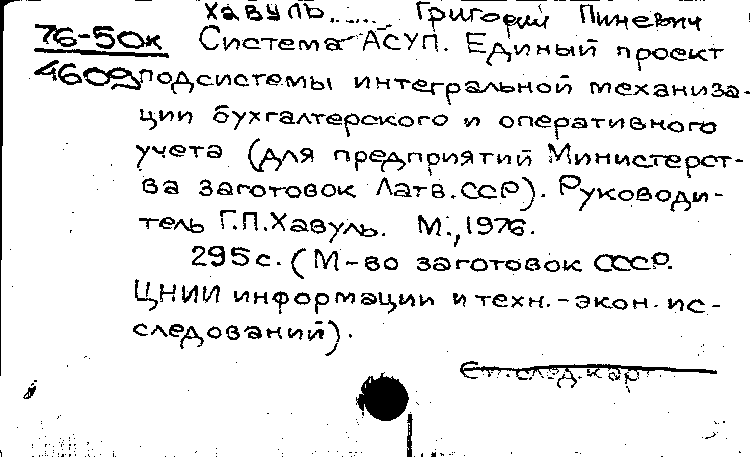 Хавуль Григорий Пиневич
76-50к Система АСУП. Единый проект
4609 подсистемы интегральной механиза-
ции бухгалтерского и оперативного
учета (для предприятий Министерст-
ва заготовок Латв.ССР). Руководи-
тель Г.П.Хавуль. М.,1976.
295с. (М-во заготовок СССР.
ЦНИИ информации и техн.-экон. ис-
следований).
след.кар